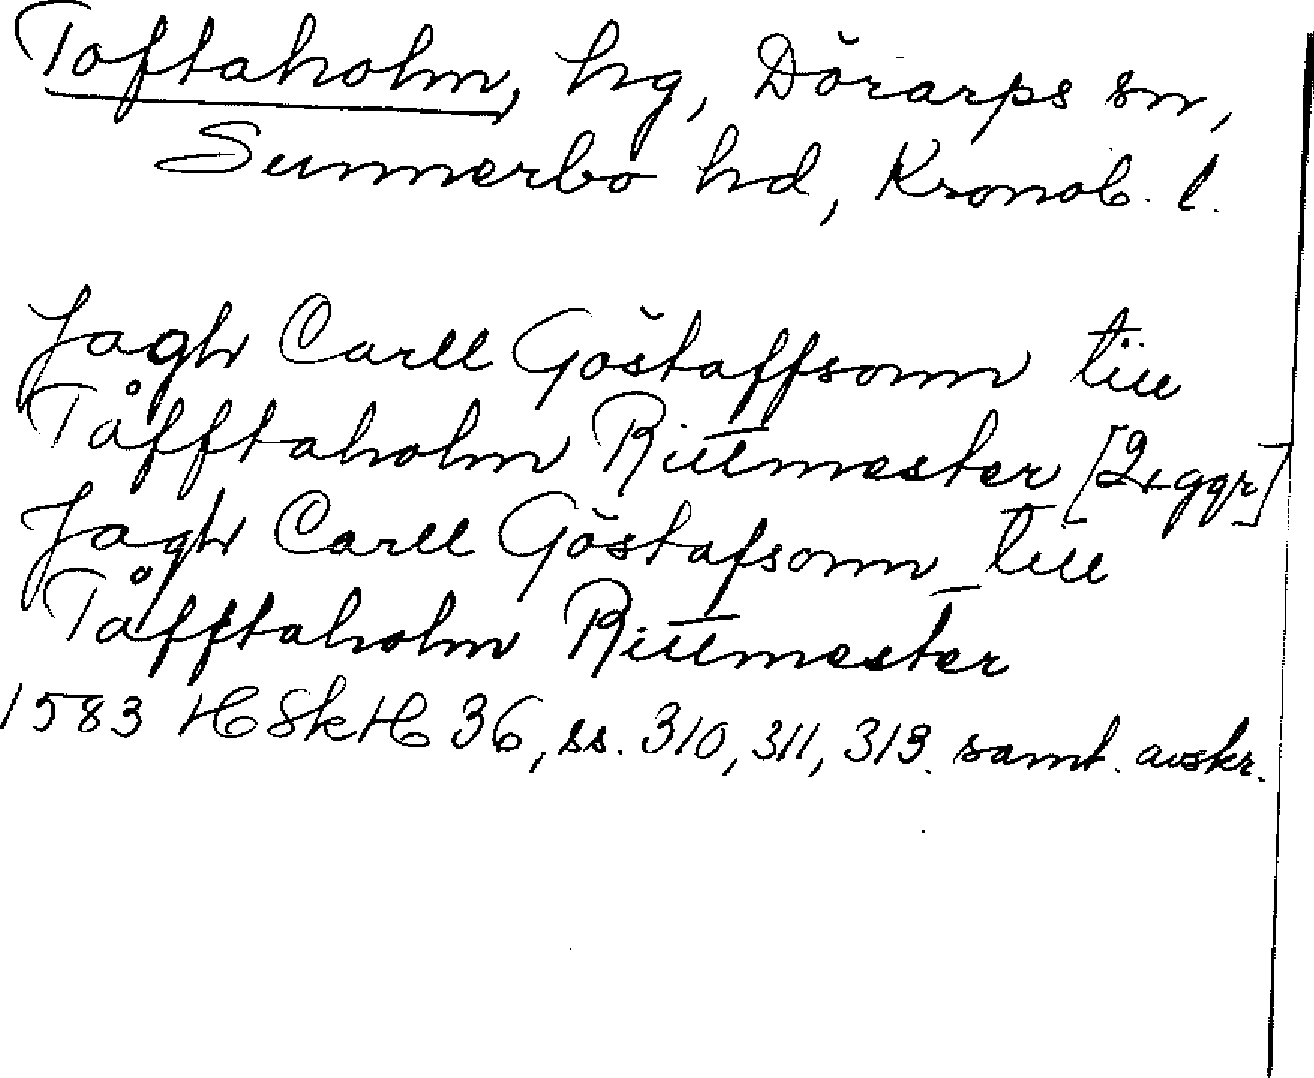 Toftaholm, hg, Dörarps sn,
Sunnerbo hd, Kronob. l.
Jagh Carll Göstaffsonn till
Tåfftaholm Rittmester [2 ggr]
Jagh Carll Göstafsonn till
Tåfftaholm Rittmester
1583 HSkH 36, ss. 310, 311, 313. samt. avskr.